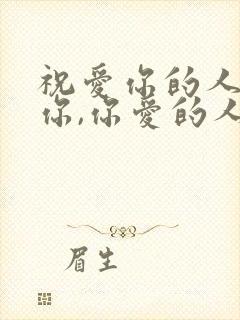 祝爱你的人
你,你爱的人
眉生